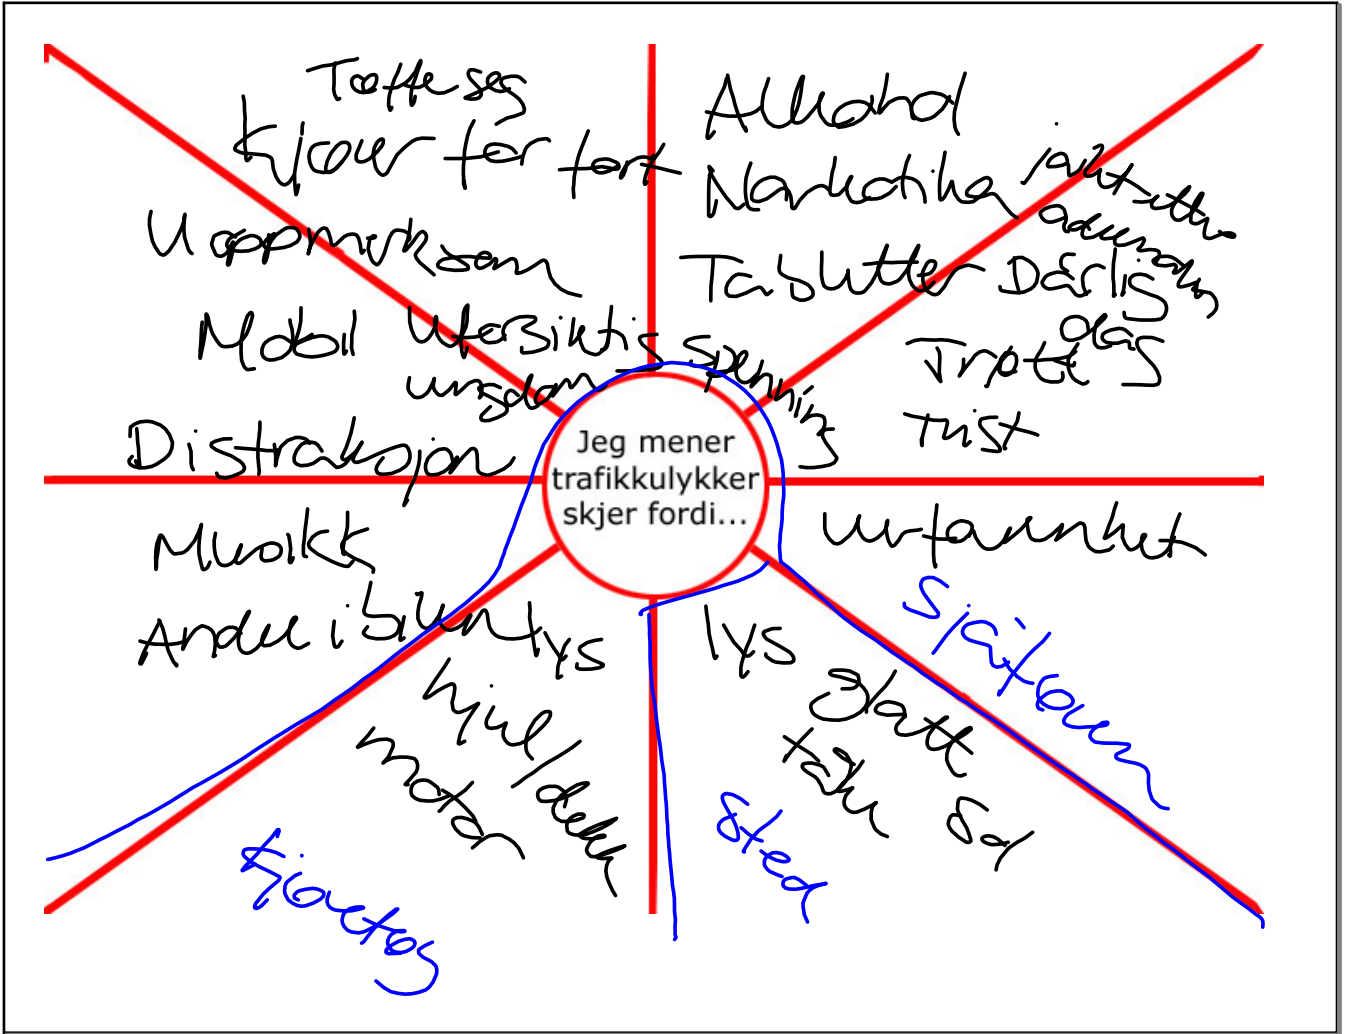 Tøffe seg
Kjører for fort
Uoppmerksom
Mobil
Uforsiktig
ungdom
Distraksjon
Alkohol
Narkotika
Tabletter
Dårlig
dag
Trøtt
Trist
spenning
Jeg mener
trafikkulykker
skjer fordi...
Musikk
Andre i bilen
uerfarenhet
Sjåføren
lys
hjul/dekk
motor
Kjøretøy
lys
glatt
tåke
Sol
Sted